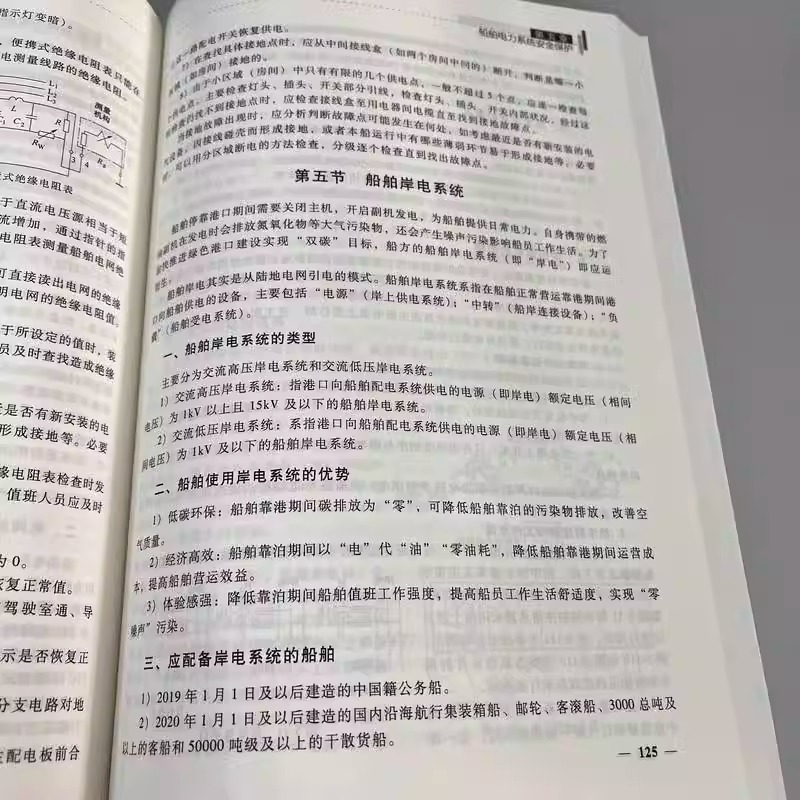 指示灯变暗）。
便携式绝缘电阻表只能在
电测量线路的绝缘电阻。
L₁
L₂
L₃
测量
机构
L
C₂
R
R_W
3
4
式绝缘电阻表
于直流电压源相当于短
流增加，通过指针的指
电阻表测量船舶电网绝
可直接读出电网的绝缘
明电网的绝缘电阻值。
于所设定的值时，装
员及时查找造成绝缘
是否有新安装的电
形成接地等。必要
缘电阻表检查时发
值班人员应及时
为 0。
恢复正常值。
驾驶室通、导
示是否恢复正
分支电路对地
主配电板前合
船舶电力系统安全保护
第五章
一路配电开关恢复供电。
7）在查找具体接地点时，应从中间接线盒（如两个房间中间的）断开，判断是哪一小
区域（如房间）接地的。
8）由于小区域（房间）中只有有限的几个供电点，一般不超过 5 个点，应逐一检查每
个供电点，主要检查灯头、插头、开关部分引线，检查灯头、插头、开关内部状况，经过这
些检查仍找不到接地点时，应检查接线盒至用电器间电缆直至找到接地故障点。
当接地故障出现时，应分析判断故障点可能发生在何处，如考虑最近是否有新安装的电
气设备，因接线碰壳而形成接地，或者本船运行中有哪些薄弱环节易于形成接地等，必要
时，可以用分区域断电的方法检查，分级逐个检查直到找出故障点。
第五节 船舶岸电系统
船舶停靠港口期间需要关闭主机，开启副机发电，为船舶提供日常电力。自身携带的燃
油副机在发电时会排放氮氧化物等大气污染物，还会产生噪声污染影响船员工作生活。为了
加快推进绿色港口建设实现“双碳”目标，船方的船舶岸电系统（即“岸电”）即应运
而生。
船舶岸电其实是从陆地电网引电的模式。船舶岸电系统系指在船舶正常营运靠港期间港
口向船舶供电的设备，主要包括“电源”（岸上供电系统）；“中转”（船岸连接设备）；“负
载”（船舶受电系统）。
一、船舶岸电系统的类型
主要分为交流高压岸电系统和交流低压岸电系统。
1）交流高压岸电系统：指港口向船舶配电系统供电的电源（即岸电）额定电压（相间
电压）为 1kV 以上且 15kV 及以下的船舶岸电系统。
2）交流低压岸电系统：系指港口向船舶配电系统供电的电源（即岸电）额定电压（相
间电压）为 1kV 及以下的船舶岸电系统。
二、船舶使用岸电系统的优势
1）低碳环保：船舶靠港期间碳排放为“零”，可降低船舶靠泊的污染物排放，改善空
气质量。
2）经济高效：船舶靠泊期间以“电”代“油”“零油耗”，降低船舶靠港期间运营成
本，提高船舶营运效益。
3）体验感强：降低靠泊期间船舶值班工作强度，提高船员工作生活舒适度，实现“零
噪声”污染。
三、应配备岸电系统的船舶
1）2019 年 1 月 1 日及以后建造的中国籍公务船。
2）2020 年 1 月 1 日及以后建造的国内沿海航行集装箱船、邮轮、客滚船、3000 总吨及
以上的客船和 50000 吨级及以上的干散货船。
— 125 —